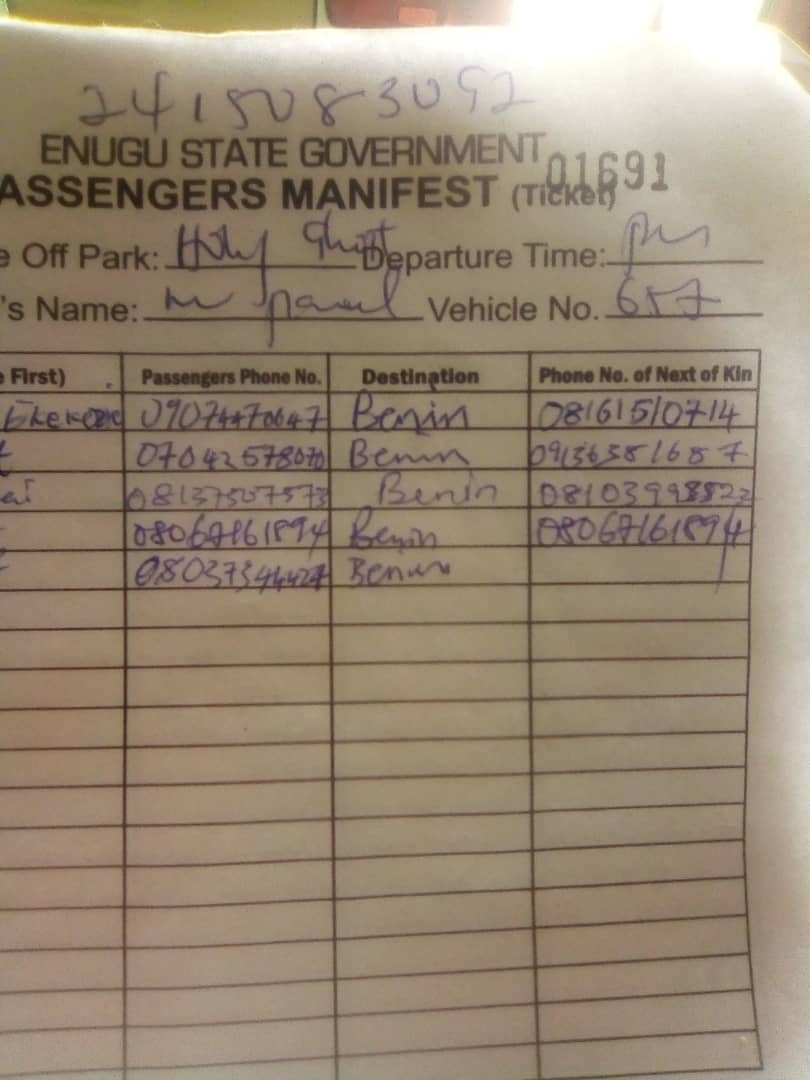 2415083092
ENUGU STATE GOVERNMENT
ASSENGERS MANIFEST (Ticket) 01691
e Off Park: Holy Ghost Departure Time: pm
's Name: Mr paul Vehicle No. 657
e First) Passengers Phone No. Destination Phone No. of Next of Kin
Benin 08161510714
07042578070 Benin 09136581687
ai 08137507573 Benin 08103998822
08067161894 Benin 08067161894
08037344427 Benin